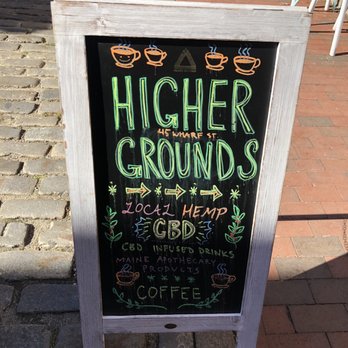 HIGHER
45 WHARF ST.
GROUNDS
LOCAL HEMP
CBD
CBD INFUSED DRINKS
MAINE APOTHECARY
PRODUCTS
COFFEE